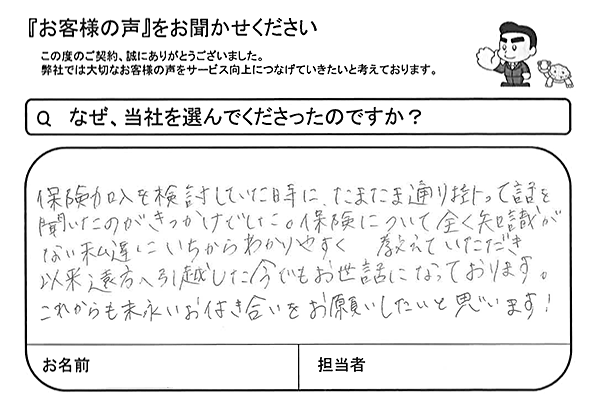 『お客様の声』をお聞かせください
この度のご契約、誠にありがとうございました。
弊社では大切なお客様の声をサービス向上につなげていきたいと考えております。
Q なぜ、当社を選んでくださったのですか？
保険加入を検討していた時に、たまたま通り掛かって話を
聞いたのがきっかけでした。保険について全く知識が
ない私達にいちからわかりやすく 教えていただき
以来遠方へ引越した今でもお世話になっております。
これからも末永いお付き合いをお願いしたいと思います！
お名前 担当者